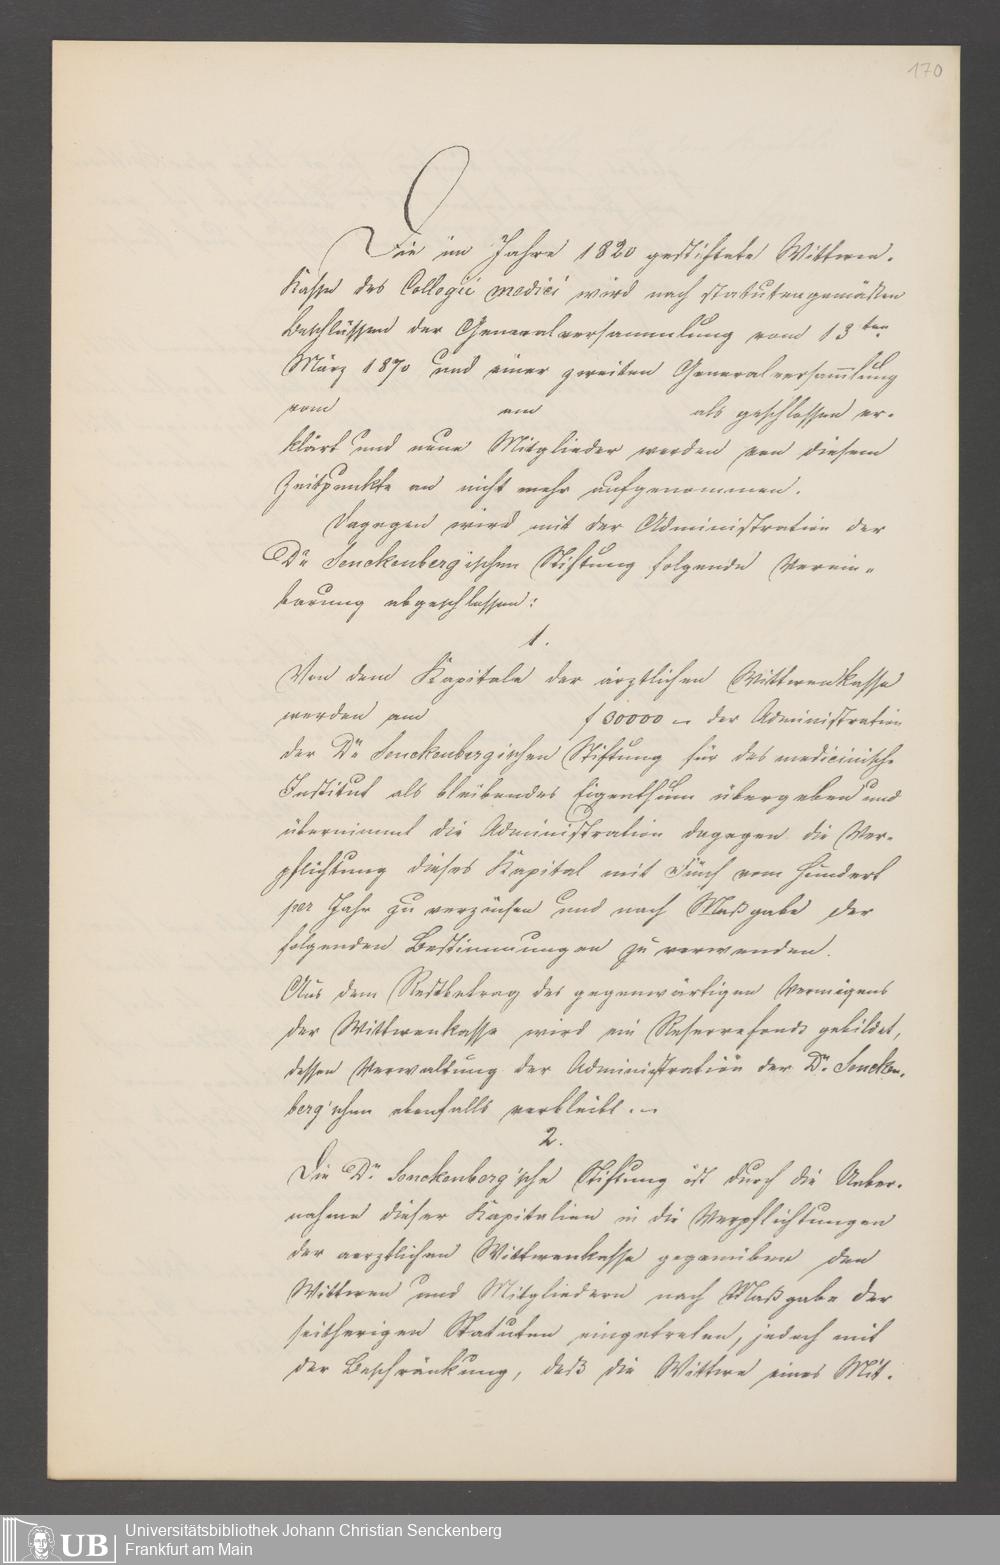 170
Die im Jahre 1820 gestiftete Wittwen-
Kasse des Collegii medici wird nach statutengemäßen
Beschlüssen der Generalversammlung vom 13ten
März 1870 und einer zweiten Generalversam̅lung
vom als geschlossen er-
klärt und neue Mitglieder werden von diesem
Zeitpunkte an nicht mehr aufgenommen.
Dagegen wird mit der Administration der
Dr. Senckenbergischen Stiftung folgende Verein-
barung abgeschlossen:
1.
Von dem Kapitale der ärztlichen Wittwenkasse
werden am f 30000 – der Administration
der Dr. Senckenbergischen Stiftung für das medicinische
Institut als bleibendes Eigenthum übergeben und
übernimmt die Administration dagegen die Ver-
pflichtung dieses Kapital mit Fünf vom Hundert
per Jahr zu verzinsen und nach Maßgabe der
folgenden Bestimmungen zu verwenden.
Aus dem Restbetrag des gegenwärtigen Vermögens
der Wittwenkasse wird ein Reservefonds gebildet,
dessen Verwaltung der Administration der Dr. Sencken-
berg'schen ebenfalls verbleibt. –
2.
Die Dr. Senckenberg'sche Stiftung ist durch die Ueber-
nahme dieser Kapitalien in die Verpflichtungen
der aerztlichen Wittwenkasse gegenüber den
Wittwen und Mitgliedern nach Maßgabe der
seitherigen Statuten eingetreten, jedoch mit
der Beschränkung, daß die Wittwe eines Mit-
Universitätsbibliothek Johann Christian Senckenberg
UB Frankfurt am Main